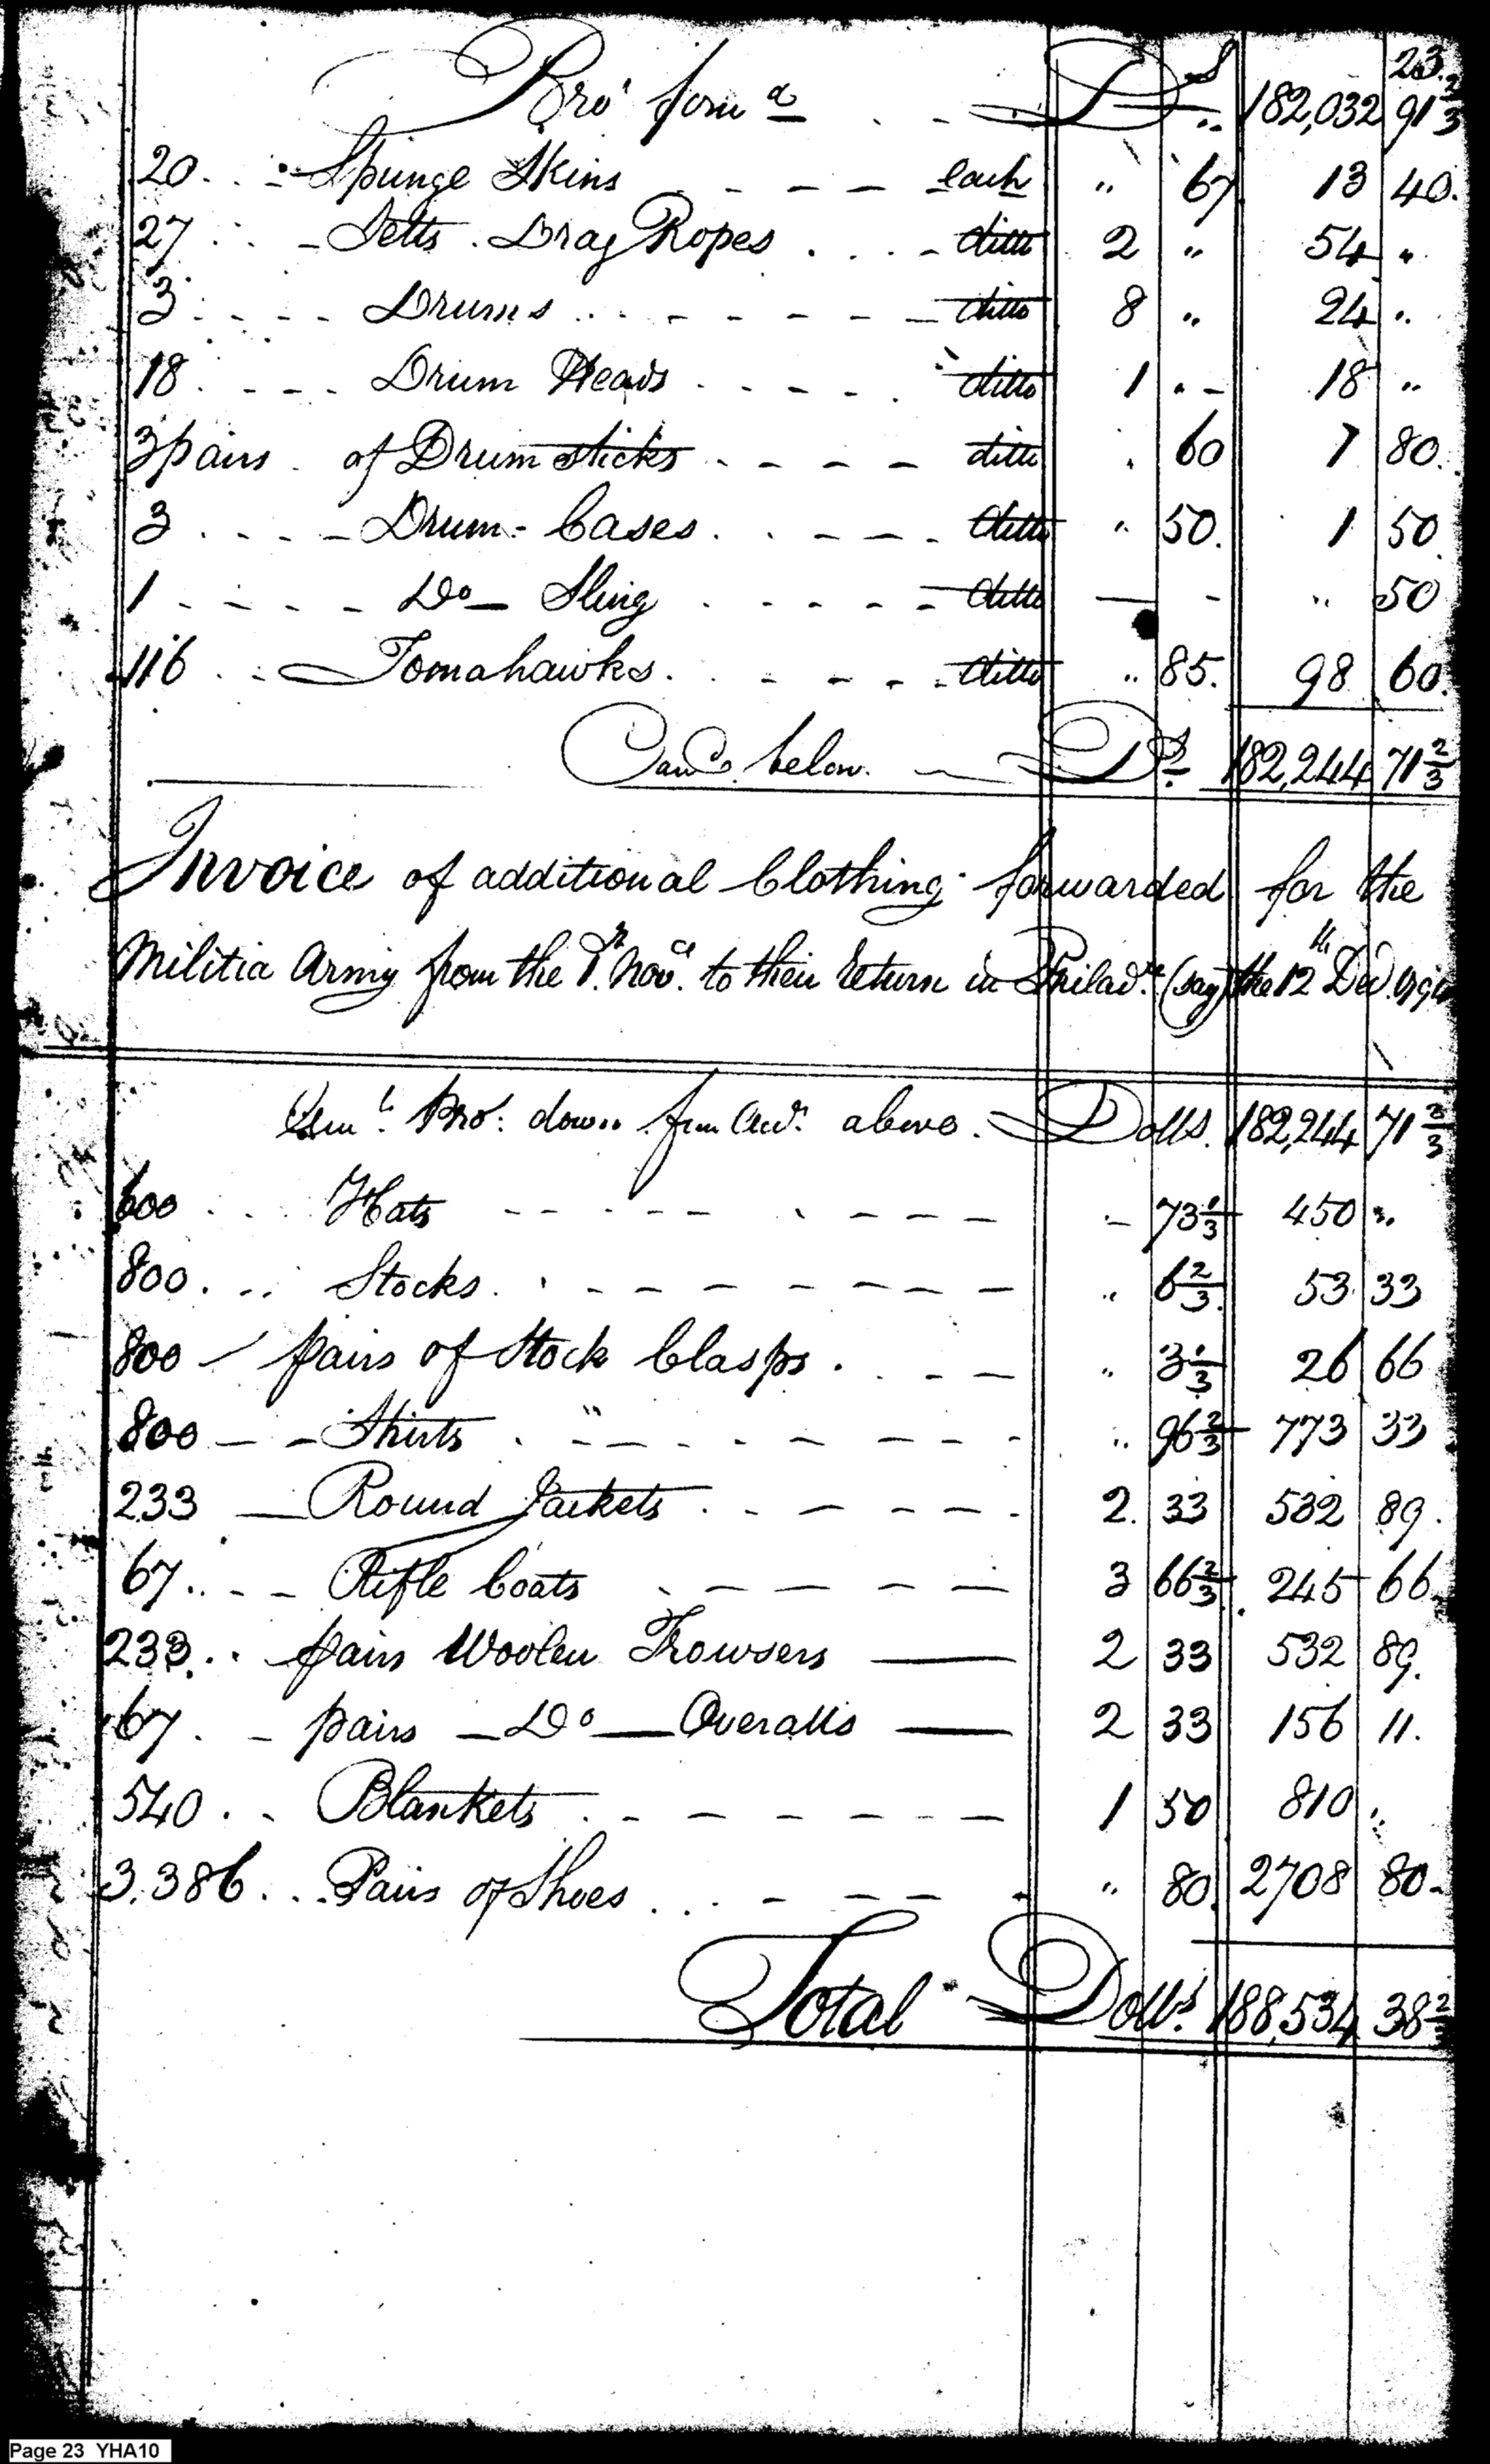 23.
Bro' forwd D S 182,032 91 2/3
20 Spunge Skins each " 67 13 40.
27 Setts Drag Ropes ditto 2 " 54 "
3 Drums ditto 8 " 24 "
18 Drum Heads ditto 1 " 18 "
3 pairs of Drum sticks ditto . 60 1 80.
3 Drum-Cases ditto " 50. 1 50
1 Do Sling ditto — - " 50
116 Tomahawks ditto " 85. 98 60.
below. Ds 182,244 71 2/3
Invoice of additional Clothing forwarded for the
Militia Army from the 1st Novr. to their return in Philada. (say) the 12th Decr.
Bro. down above. Dolls. 182,244 71 2/3
600 Hats - 73 1/3 450 "
800 Stocks. " 6 2/3 53 33
800 pairs of Stock Clasps. " 3 1/3 26 66
800 Shirts " 96 2/3 773 33
233 Round Jackets 2. 33 532 89.
67 Rifle Coats 3 66 2/3 245 66
233 pairs Woolen Trowsers 2 33 532 89.
67. pairs Do Overalls 2 33 156 11.
540 Blankets 1 50 810 "
3.386 Pairs of Shoes " 80 2708 80
Total Dolls. 188,534 38 2/3
Page 23 YHA10